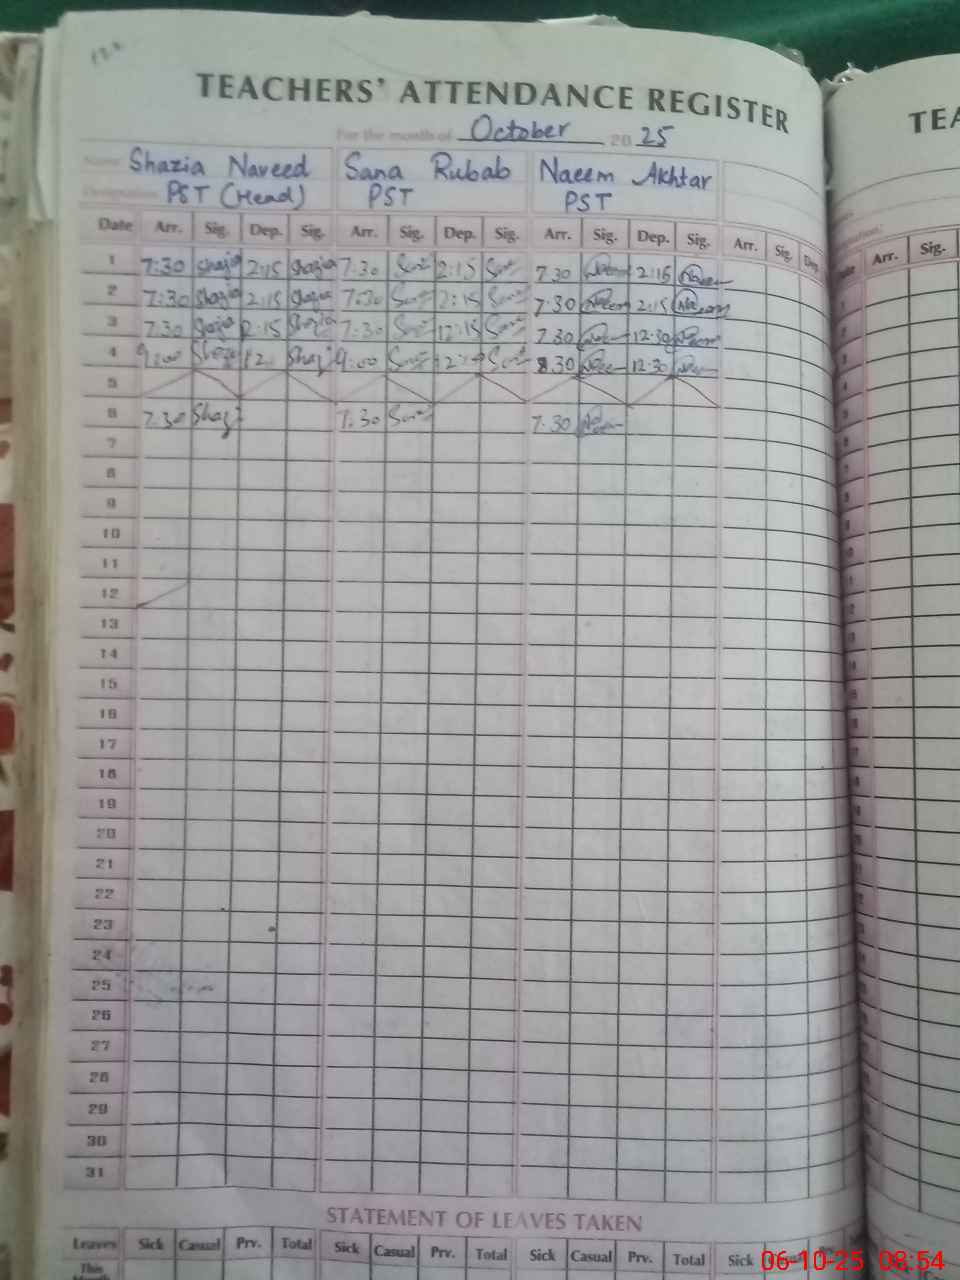 TEACHERS' ATTENDANCE REGISTER
For the month of October 2025
Name Shazia Naveed Sana Rubab Naeem Akhtar
Designation PST (Head) PST PST
Date Arr. Sig. Dep. Sig. Arr. Sig. Dep. Sig. Arr. Sig. Dep. Sig. Arr. Sig. Dep.
1 7:30 Shazia 2:15 Shazia 7:30 2:15 7.30 Naeem 2:15 Naeem
2 7:30 Shazia 2:15 Shazia 7:30 2:15 7:30 Naeem 2:15 Naeem
3 7:30 2:15 Shazia 7:30 12:15 7.30 12:30 Naeem
4 9:00 12. 9:00 8.30 12:30
5
6 7:30 7:30 7.30
7
8
9
10
11
12
13
14
15
16
17
18
19
20
21
22
23
24
25
26
27
28
29
30
31
STATEMENT OF LEAVES TAKEN
Leaves Sick Casual Prv. Total Sick Casual Prv. Total Sick Casual Prv. Total Sick
This
TEA
Arr. Sig.
06-10-25 08:54